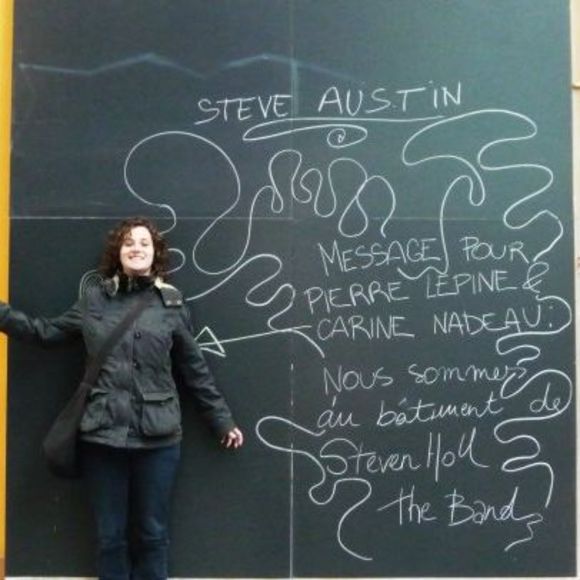 STEVE AUSTIN
MESSAGE POUR
PIERRE LÉPINE &
CARINE NADEAU:
Nous sommes
au bâtiment de
Steven Holl
the Band